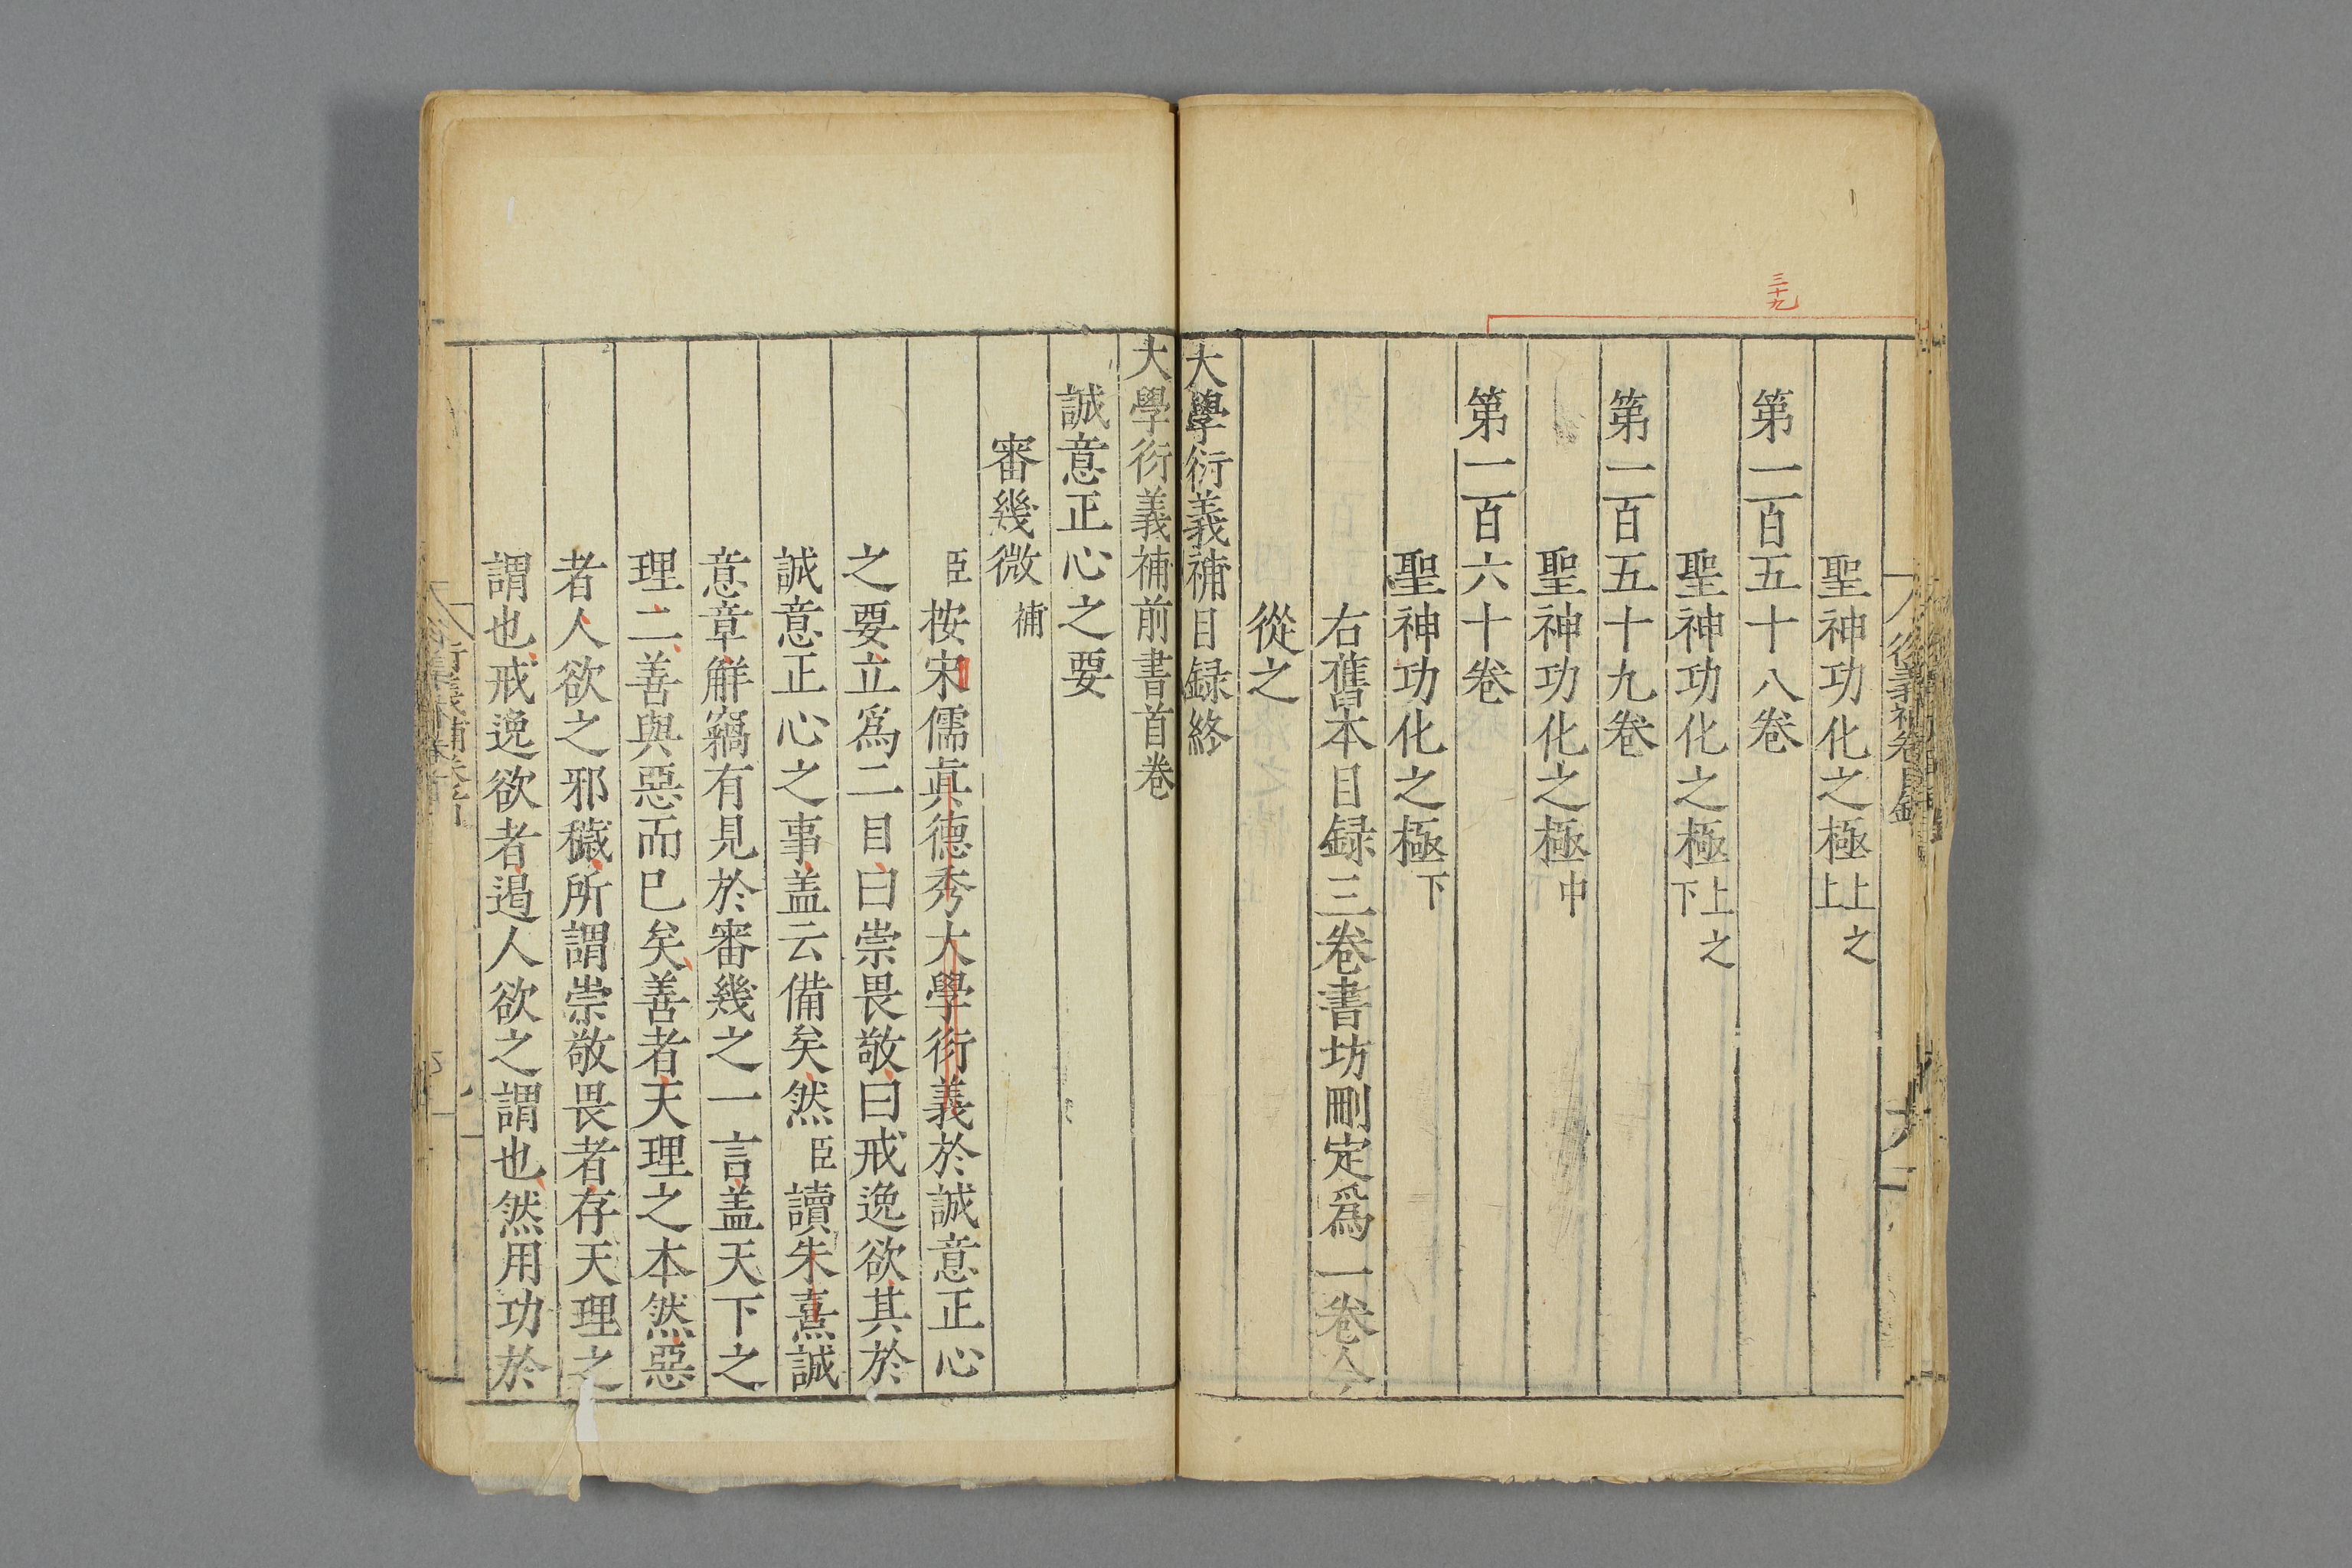 三十九
聖神功化之極上之上
第一百五十八卷
聖神功化之極上之下
第一百五十九卷
聖神功化之極中
第一百六十卷
聖神功化之極下
右舊本目録三卷書坊刪定爲一卷今
從之
大學衍義補目録終
大學衍義補前書首卷
誠意正心之要
審幾微補
臣按宋儒眞德秀大學衍義於誠意正心
之要立爲二目曰崇畏敬曰戒逸欲其於
誠意正心之事盖云備矣然臣讀朱熹誠
意章觧竊有見於審幾之一言盖天下之
理二善與惡而已矣善者天理之本然惡
者人欲之邪穢所謂崇敬畏者存天理之
謂也戒逸欲者遏人欲之謂也然用功於